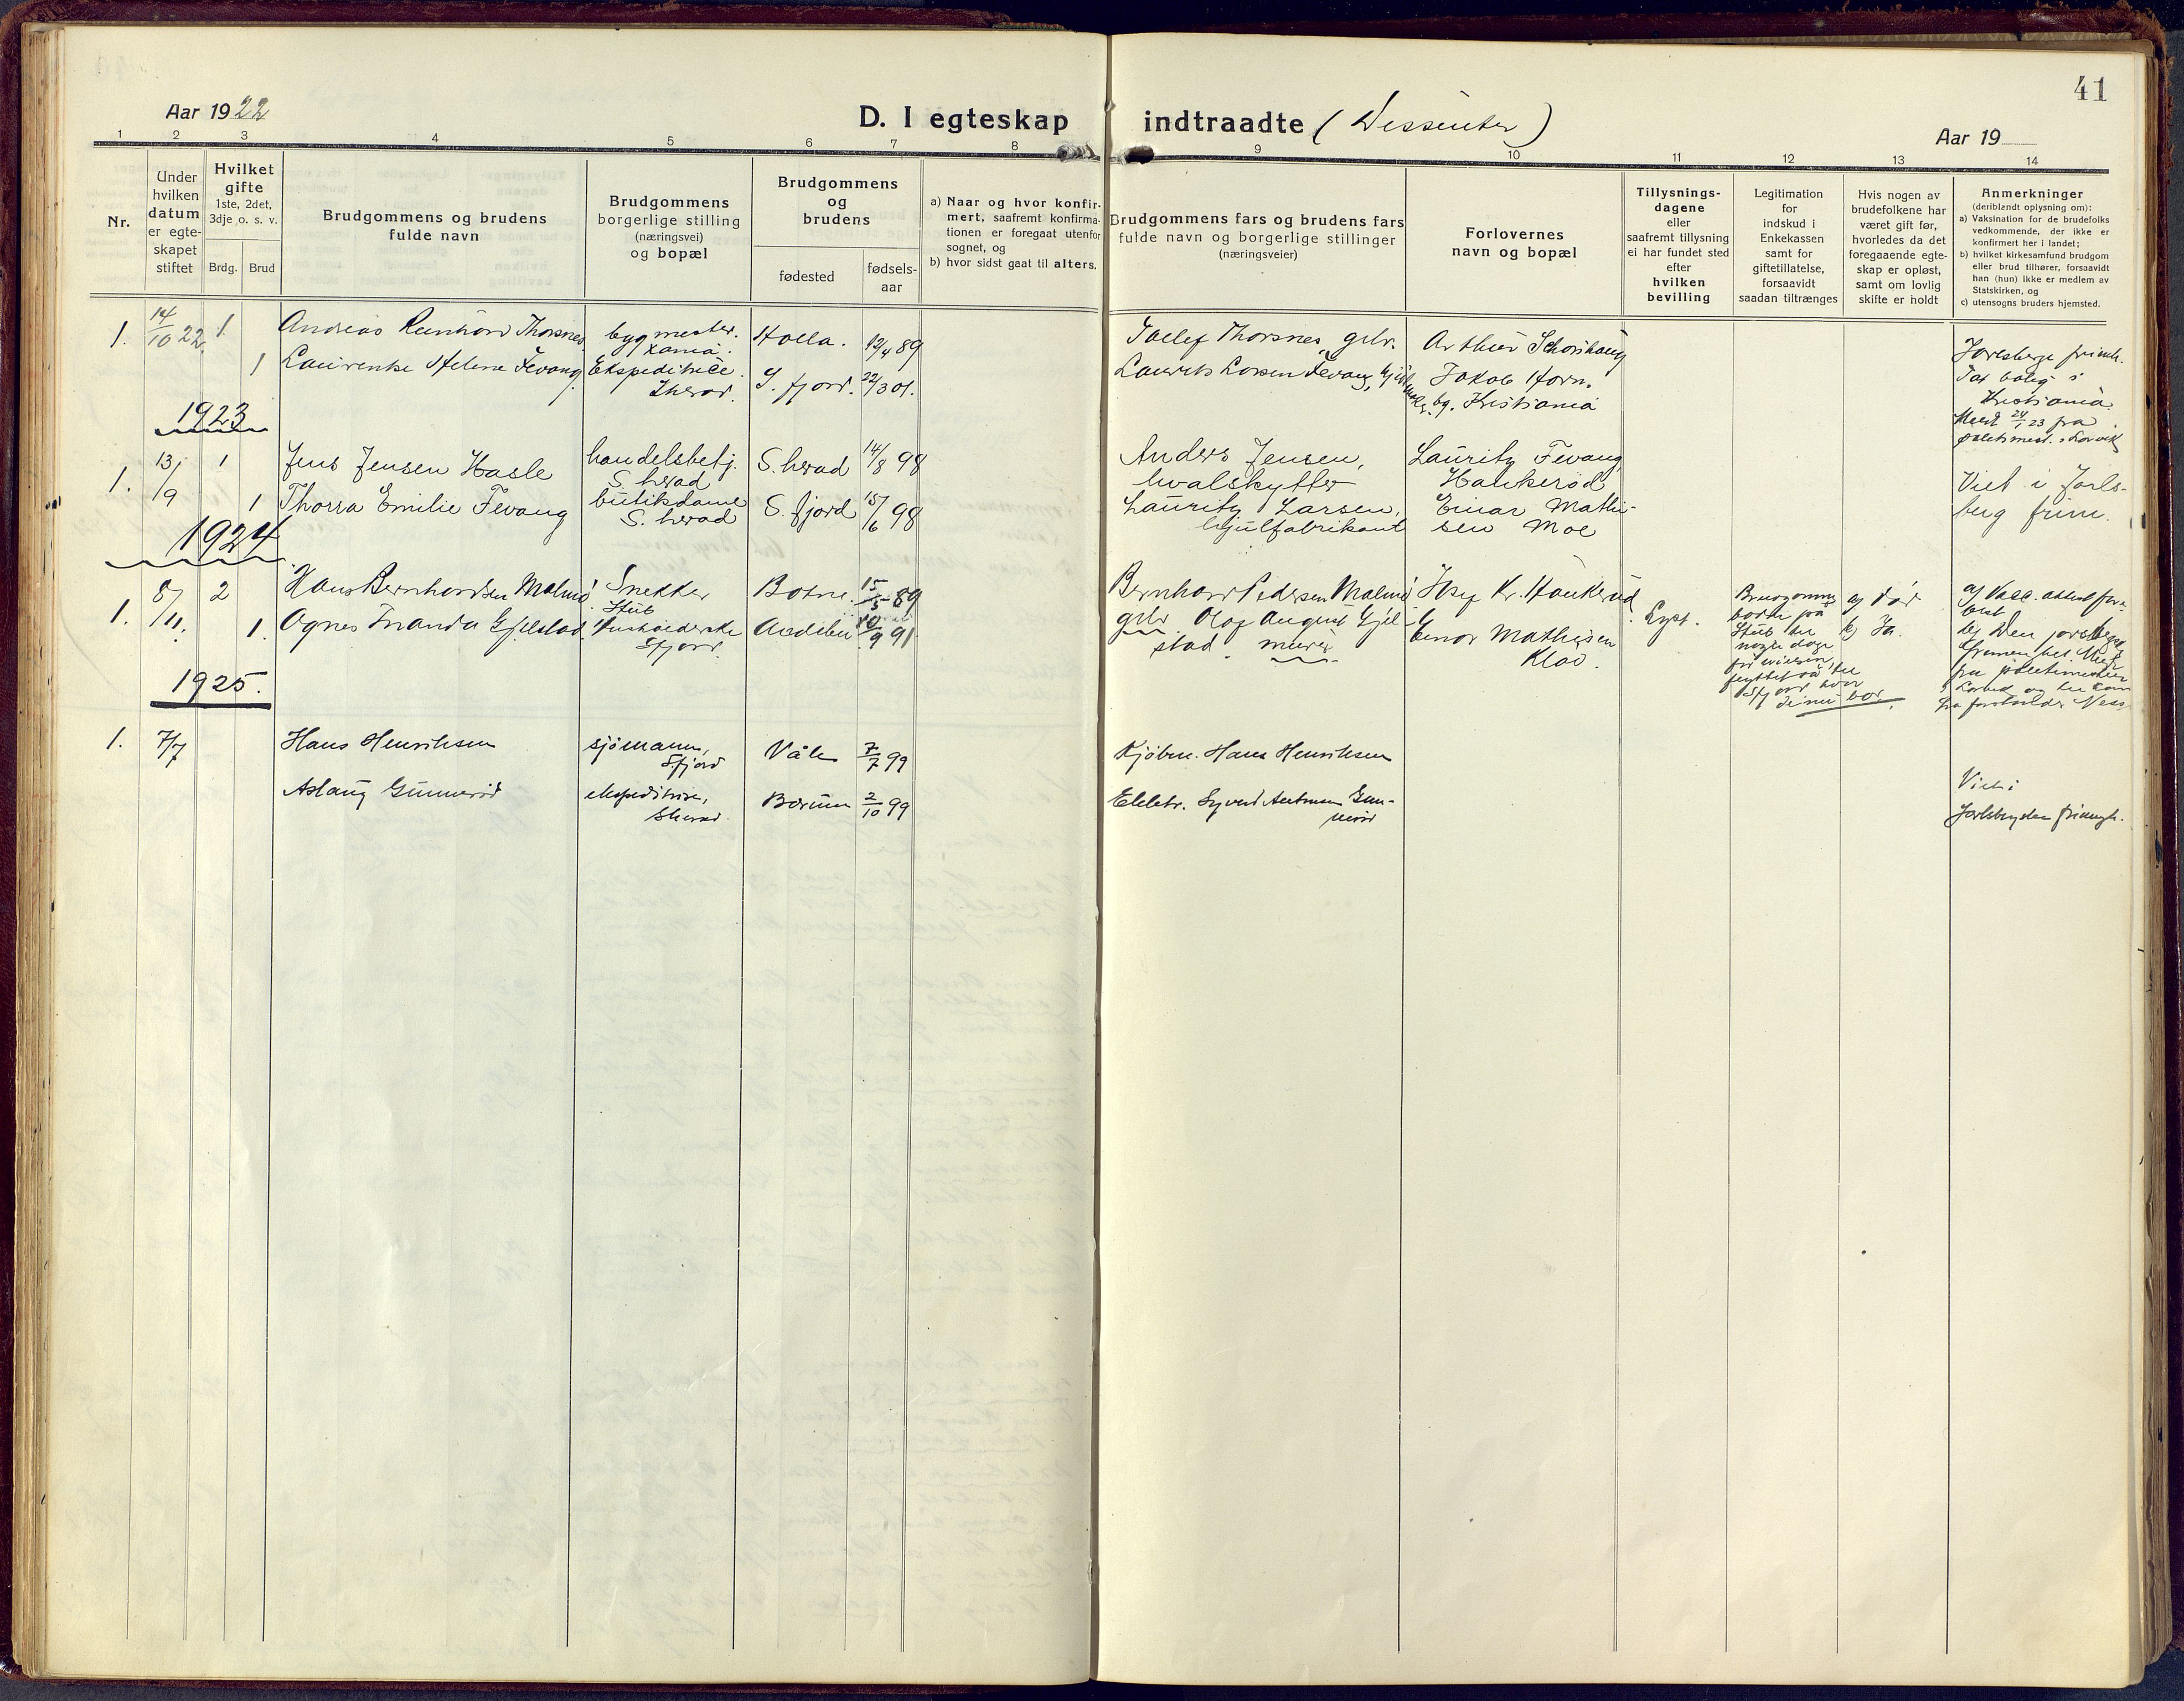 41
Aar 1922
D. I egteskap indtraadte (Dissenter)
Aar 19
1 2 3 4 5 6 7 8 9 10 11 12 13 14
Nr.
Under
hvilken
datum
er egte-
skapet
stiftet
Hvilket
gifte
1ste, 2det,
3dje o. s. v.
Brdg. Brud
Brudgommens og brudens
fulde navn
Brudgommens
borgerlige stilling
(næringsvei)
og bopæl
Brudgommens
og
brudens
fødested
fødsels-
aar
a) Naar og hvor konfir-
mert, saafremt konfirma-
tionen er foregaat utenfor
sognet, og
b) hvor sidst gaat til alters.
Brudgommens fars og brudens fars
fulde navn og borgerlige stillinger
(næringsveier)
Forlovernes
navn og bopæl
Tillysnings-
dagene
eller
saafremt tillysning
ei har fundet sted
efter
hvilken
bevilling
Legitimation
for
indskud i
Enkekassen
samt for
giftetillatelse,
forsaavidt
saadan tiltrænges
Hvis nogen av
brudefolkene har
været gift før,
hvorledes da det
foregaaende egte-
skap er opløst,
samt om lovlig
skifte er holdt
Anmerkninger
(deriblandt oplysning om):
a) Vaksination for de brudefolks
vedkommende, der ikke er
konfirmert her i landet;
b) hvilket kirkesamfund brudgom
eller brud tilhører, forsaavidt
han (hun) ikke er medlem av
Statskirken, og
c) utensogns bruders hjemsted.
1. 14/10 22. 1 Andreas Reinhard Thorsnes bygmester. Holla. 12/4 89 Tallef Thorsnes, grbr. Arthur
Kania.
1 Laurentse Helene Fevang Ekspeditrice S.fjord. 22/3 01. Laurits Larsen Fevang, Jakob Horn.
S.herad. bg. Kristiania
Tat bolig i
Kristiania.
Meldt 24/1 23 fra
politimest. i Larvik
1923
1. 13/9 1 Jens Jensen Hasle handelsbetj. S. herad 14/8 98 Anders Jensen, Lauritz Fevang
S. herad hvalskytter Haukerød
1 Thorra Emilie Fevang butiksdame S. fjord 15/6 98 Lauritz Larsen, Einar Mathi-
S. herad hjulfabrikant sen Moe
Viet i Jarls-
berg frim.
1924
1. 8/11. 2 Hans Bernhardsen Malmø Snekker Botne. 15/5 89 Bernhard Pedersen Malmø
Stub
1. Agnes Inanda Gjelstad Husholderske Andebu 10/9 91 grbr Olaf August Gjel-
S.fjord stad murer
Kr. Haukerød
Einar Mathisen
Klav.
Lyst.
Brudgommen
bodde på
Stub til
nogle dage
før vielsen,
flyttet så til
S.fjord hvor
de nu bor.
a) død
b) Ja.
1925.
1. 7/7 Hans Henriksen sjømann, Våle 7/7 99 Kjøbm. Hans Henriksen
S.fjord
Aslaug Gunnerød ekspeditrise, Bærum 2/10 99 Elektr. Syvert Gun-
S.herad nerød
Viet i
Jarlsberg frimgh.